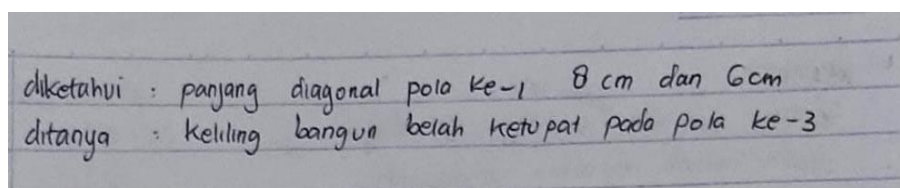 diketahui : panjang diagonal pola ke-1 8 cm dan 6cm
ditanya : keliling bangun belah ketupat pada pola ke-3